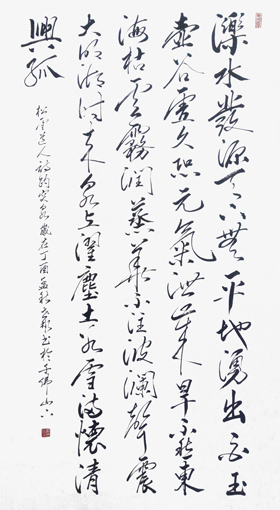 濼水發源天下無平地湧出白玉
壺谷虛久恐元氣泄歲旱不愁東
海枯雲霧潤蒸華不注波瀾聲震
大明湖時来泉上濯塵土冰雪滿懷清
興孤
松雪道人詩趵突泉歲在丁酉孟秋書於千佛山下